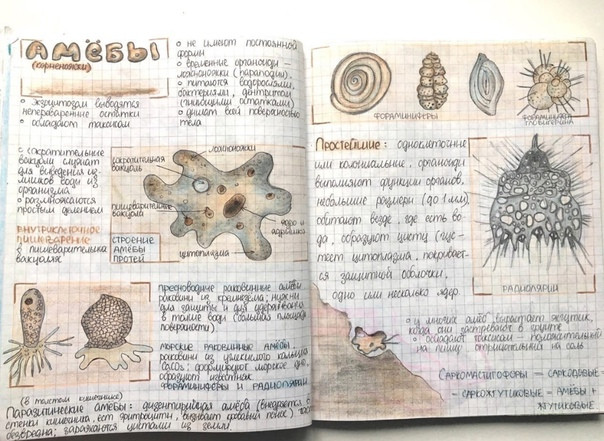 АМЁБЫ
(корненожки)
о не имеют постоянной
формы
о временные органоиды –
ложноножки (параподии)
о питаются водорослями,
бактериями, дентритом
(гниющими остатками)
о дышат всей поверхностью
тела
о экзоцитозом выводятся
непереваренные остатки
о обладают таксисом
о сократительные
вакуоли служат
для выведения из-
лишков воды из
организма
о размножаются
простым делением
ВНУТРИКЛЕТОЧНОЕ
ПИЩЕВАРЕНИЕ
о пищеварительная
вакуоля
ложноножки
сократительная
вакуоль
пищеварительная
вакуоль
ядро и
ядрышко
цитоплазма
СТРОЕНИЕ
АМЁБЫ
ПРОТЕЙ
пресноводные раковинные амёбы
раковины из кремнезёма; нужны
для защиты и для удерживания
в толще воды (большая площадь
поверхности)
морские раковинные амёбы
раковины из углекислого кальция
CaCO₃; формируют морское дно,
образуют известняк
ФОРАМИНИФЕРЫ И РАДИОЛЯРИИ
(в толстом кишечнике)
Паразитические амёбы: дизентирийная амёба (внедряется в
стенки кишечника, ест эритроциты, вызывает кровавый понос)
безвредна; заражаются цистами из земли.
ФОРАМИНИФЕРЫ
ФОРАМИНИФЕРА
ГЛОБИГЕРИНА
Простейшие: одноклеточные
или колониальные, органоиды
выполняют функции органов,
небольшие размеры (до 1 мм)
обитают везде, где есть во-
да, образуют цисту (гус-
теет цитоплазма, покрывает-
ся защитной оболочкой,
одно или несколько ядер
РАДИОЛЯРИИ
о у многих амёб вырастает жгутик,
когда они застревают в грунте
о обладают таксисом – положительный
на пищу, отрицательный на соль
САРКОМАСТИГОФОРЫ – САРКОДОВЫЕ
– САРКОЖГУТИКОВЫЕ – АМЁБЫ +
ЖГУТИКОВЫЕ